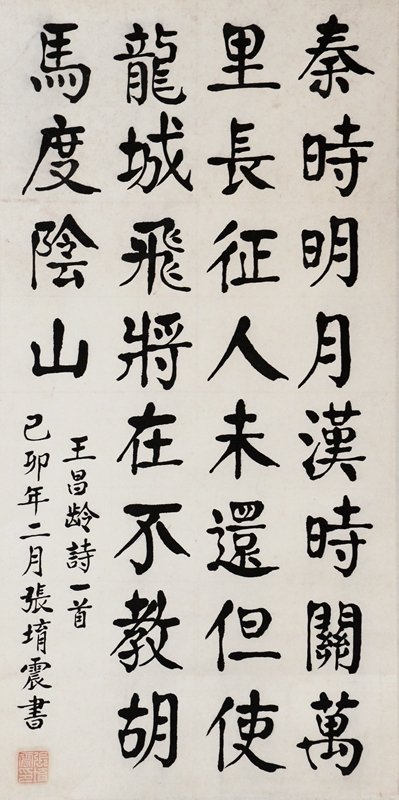 秦時明月漢時關萬
里長征人未還但使
龍城飛將在不教胡
馬度陰山
王昌齡詩一首
己卯年二月張堉震書